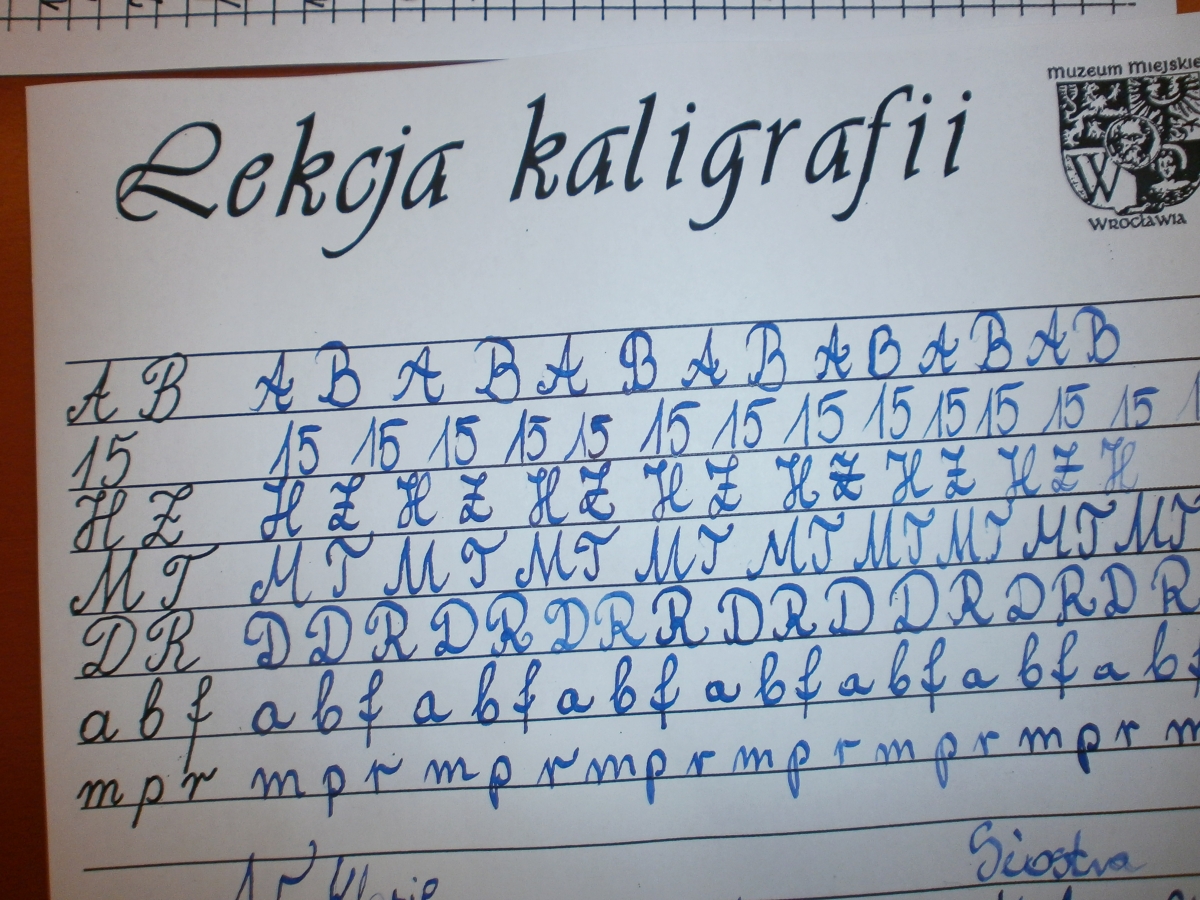 Lekcja kaligrafii
muzeum miejskie
W
wrocławia
A B A B A B A B A B A B A B A B
15 15 15 15 15 15 15 15 15 15 15 15 15 15
H Z H Z H Z H Z H Z H Z H Z H
M T M T M T M T M T M T M T M T M T M T
D R D D R D R D R R D R D D R D R D R
a b f a b f a b f a b f a b f a b f a b f a b f
m p r m p r m p r m p r m p r m p r m p r m
Siostra